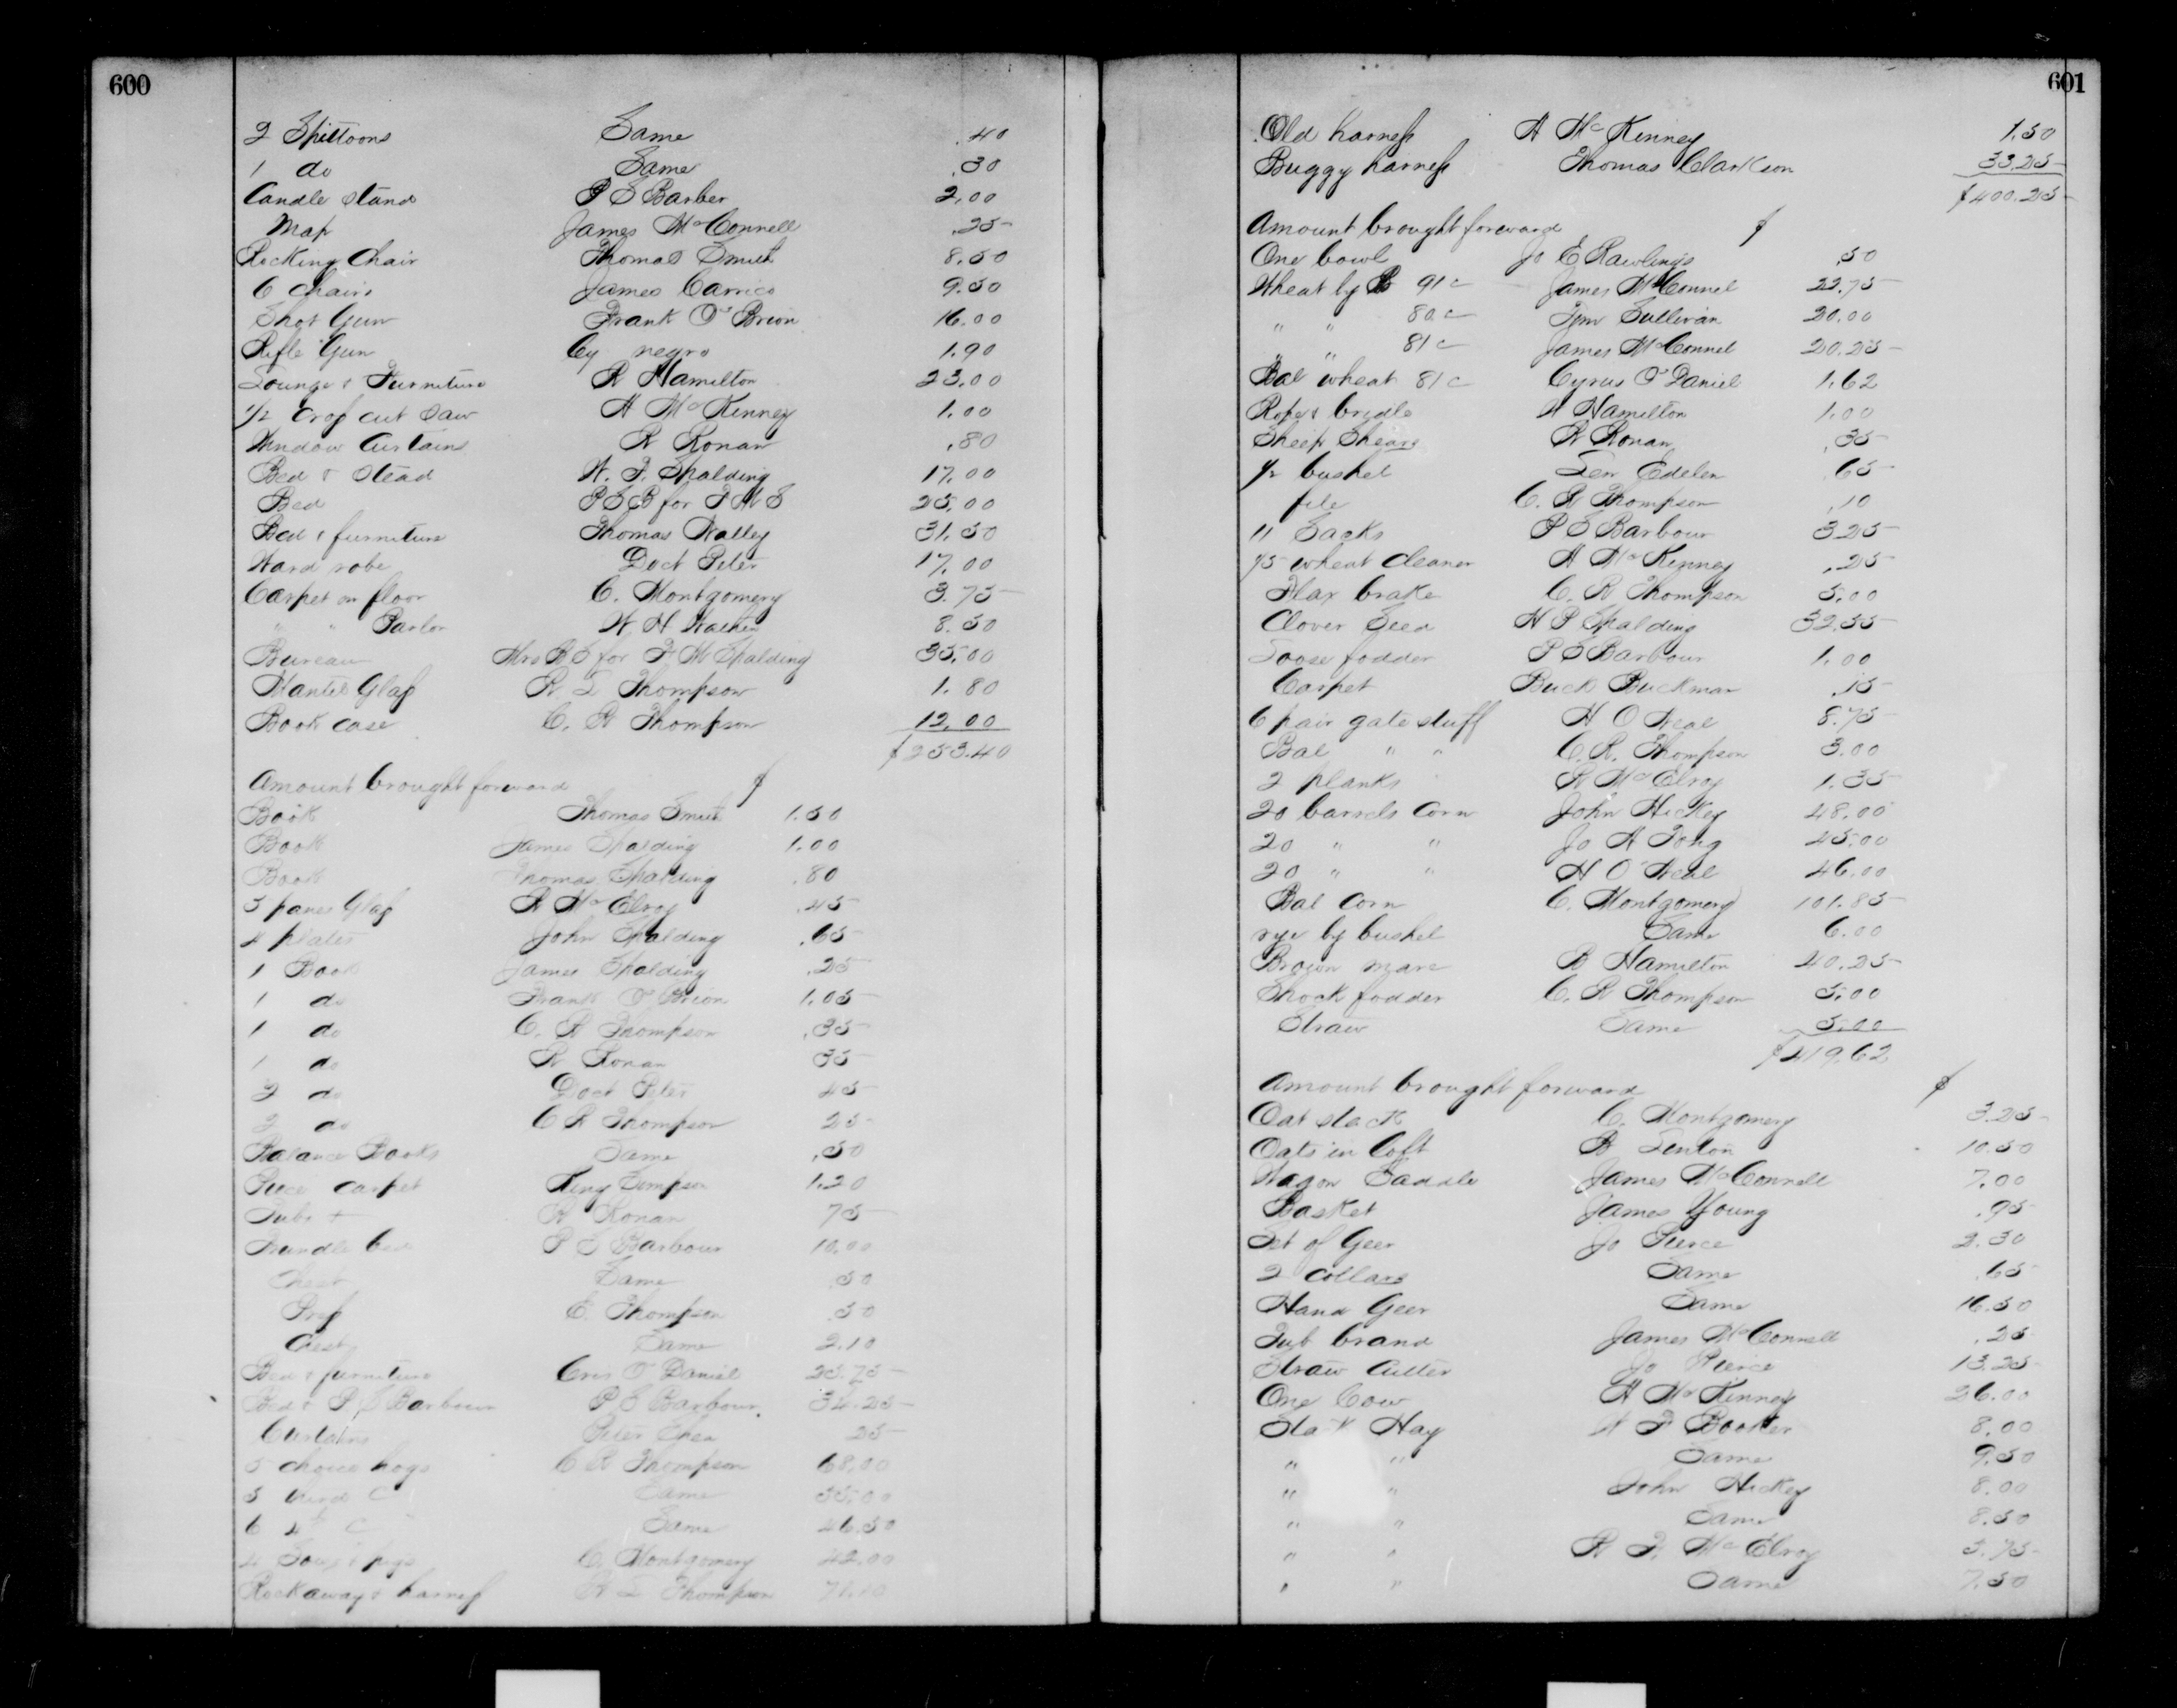 600
2 Spittoons Same .40
1 do Same .30
Candle Stand P S Barber 2.00
Map James McConnell .25
Rocking Chair Thomas Smith 8.50
6 Chairs James Carrico 9.50
Shot Gun Frank O'Brion 16.00
Rifle Gun Cy negro 1.90
Lounge & Furniture R Hamilton 23.00
1/2 Crop cut Saw H McKenney 1.00
Window Curtains R Ronan .80
Bed & Stead W. F. Spalding 17.00
Bed P S B for F M S 25.00
Bed & furniture Thomas Nalley 31.50
Ward robe Doct Peter 17.00
Carpet on floor C. Montgomery 3.75
" " Parlor W H Wathen 8.50
Bureau Mrs B S for F M Spalding 35.00
Mantel Glass R L Thompson 1.80
Book case C. R Thompson 12.00
$253.40
Amount brought forward $
Book Thomas Smith 1.50
Book James Spalding 1.00
Book Thomas Spalding .80
5 panes Glass R McElroy .45
4 plates John Spalding .65
1 Book James Spalding .25
1 do Frank O'Brion 1.05
1 do C. R Thompson .35
1 do R Ronan 35
2 do Doct Peter 45
2 do C R Thompson 25
Balance Books Same .50
Piece carpet King Simpson 1.20
Tubs + R Ronan 75
Trundle bed P S Barbour 10.00
Chest Same .50
E. Thompson .50
Chest Same 2.10
Bed & furniture Cris O'Daniel 25.75
Bed & P. S Barbour P S Barbour 34.25
Curtains Peter 25
5 choice hogs C R Thompson 68.00
5 Same 35.00
6 4th C Same 46.50
4 Sows & pigs C. Montgomery 42.00
Rockaway & harness R L Thompson
601
Old harness H McKenney 1.50
Buggy harness Thomas Clarkson 33.25
$400.25
Amount brought forward $
One bowl Jo E Rawlings .50
Wheat by B 91c James McConnel 22.75
" " 80c Tim Sullivan 20.00
" " 81c James McConnel 20.25
Bal wheat 81c Cyrus O'Daniel 1.62
Rope & bridle W Hamilton 1.00
Sheep Shears R Ronan .35
1/2 bushel Len Edelen .65
file C. R Thompson .10
11 Sacks P S Barbour 3.25
1/5 wheat cleaner H McKenney .25
Flax brake C. R Thompson 5.00
Clover Seed H P Spalding 32.55
Loose fodder P S Barbour 1.00
Carpet Buck Buckman .15
6 pair gate stuff H O Neal 8.75
Bal " " C. R. Thompson 3.00
2 planks R McElroy 1.35
20 barrels corn John Hickey 48.00
20 " " Jo A Fong 45.00
20 " " H O Neal 46.00
Bal corn C. Montgomery 101.85
rye by bushel Same 6.00
Brown mare B Hamilton 40.25
Shock fodder C. R Thompson 5.00
Straw Same 5.00
$419.62
Amount brought forward $
Oat stack C. Montgomery 3.25
Oats in loft B Lenton 10.50
Wagon Saddle James McConnell 7.00
Basket James Young .95
Set of Geer Jo Pierce 2.30
2 collars Same .65
Hand Geer Same 16.50
Tub brand James McConnell .25
Straw Cutter Jo Pierce 13.25
One Cow H McKenney 26.00
Stack Hay W F Booker 8.00
" " Same 9.50
" " John Hickey 8.00
" " Same 8.50
" " R F. McElroy 5.75
" " Same 7.50